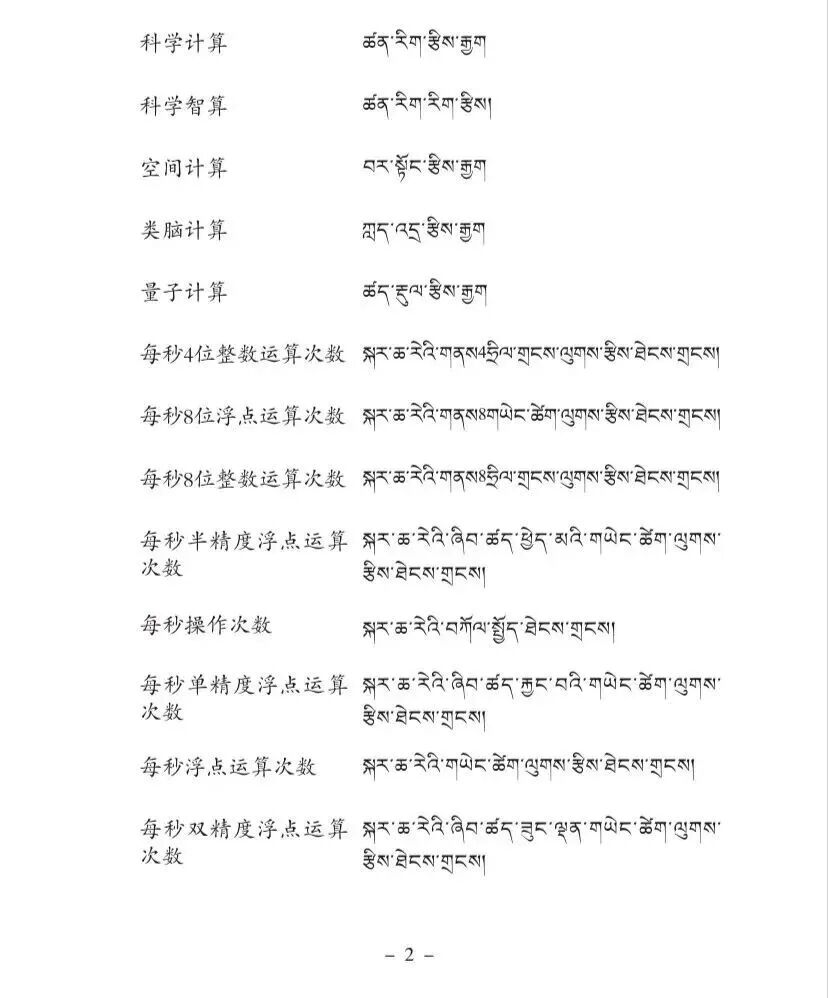 科学计算 ཚན་རིག་རྩིས་རྒྱག
科学智算 ཚན་རིག་རིག་རྩིས།
空间计算 བར་སྟོང་རྩིས་རྒྱག
类脑计算 ཀླད་འདྲ་རྩིས་རྒྱག
量子计算 ཚད་རྡུལ་རྩིས་རྒྱག
每秒4位整数运算次数 སྐར་ཆ་རེའི་གནས4ཧྲིལ་གྲངས་ལུགས་རྩིས་ཐེངས་གྲངས།
每秒8位浮点运算次数 སྐར་ཆ་རེའི་གནས8གཡེང་ཚེག་ལུགས་རྩིས་ཐེངས་གྲངས།
每秒8位整数运算次数 སྐར་ཆ་རེའི་གནས8ཧྲིལ་གྲངས་ལུགས་རྩིས་ཐེངས་གྲངས།
每秒半精度浮点运算 སྐར་ཆ་རེའི་ཞིབ་ཚད་ཕྱེད་མའི་གཡེང་ཚེག་ལུགས་
次数 རྩིས་ཐེངས་གྲངས།
每秒操作次数 སྐར་ཆ་རེའི་བཀོལ་སྤྱོད་ཐེངས་གྲངས།
每秒单精度浮点运算 སྐར་ཆ་རེའི་ཞིབ་ཚད་རྐྱང་བའི་གཡེང་ཚེག་ལུགས་
次数 རྩིས་ཐེངས་གྲངས།
每秒浮点运算次数 སྐར་ཆ་རེའི་གཡེང་ཚེག་ལུགས་རྩིས་ཐེངས་གྲངས།
每秒双精度浮点运算 སྐར་ཆ་རེའི་ཞིབ་ཚད་ཟུང་ལྡན་གཡེང་ཚེག་ལུགས་
次数 རྩིས་ཐེངས་གྲངས།
– 2 –